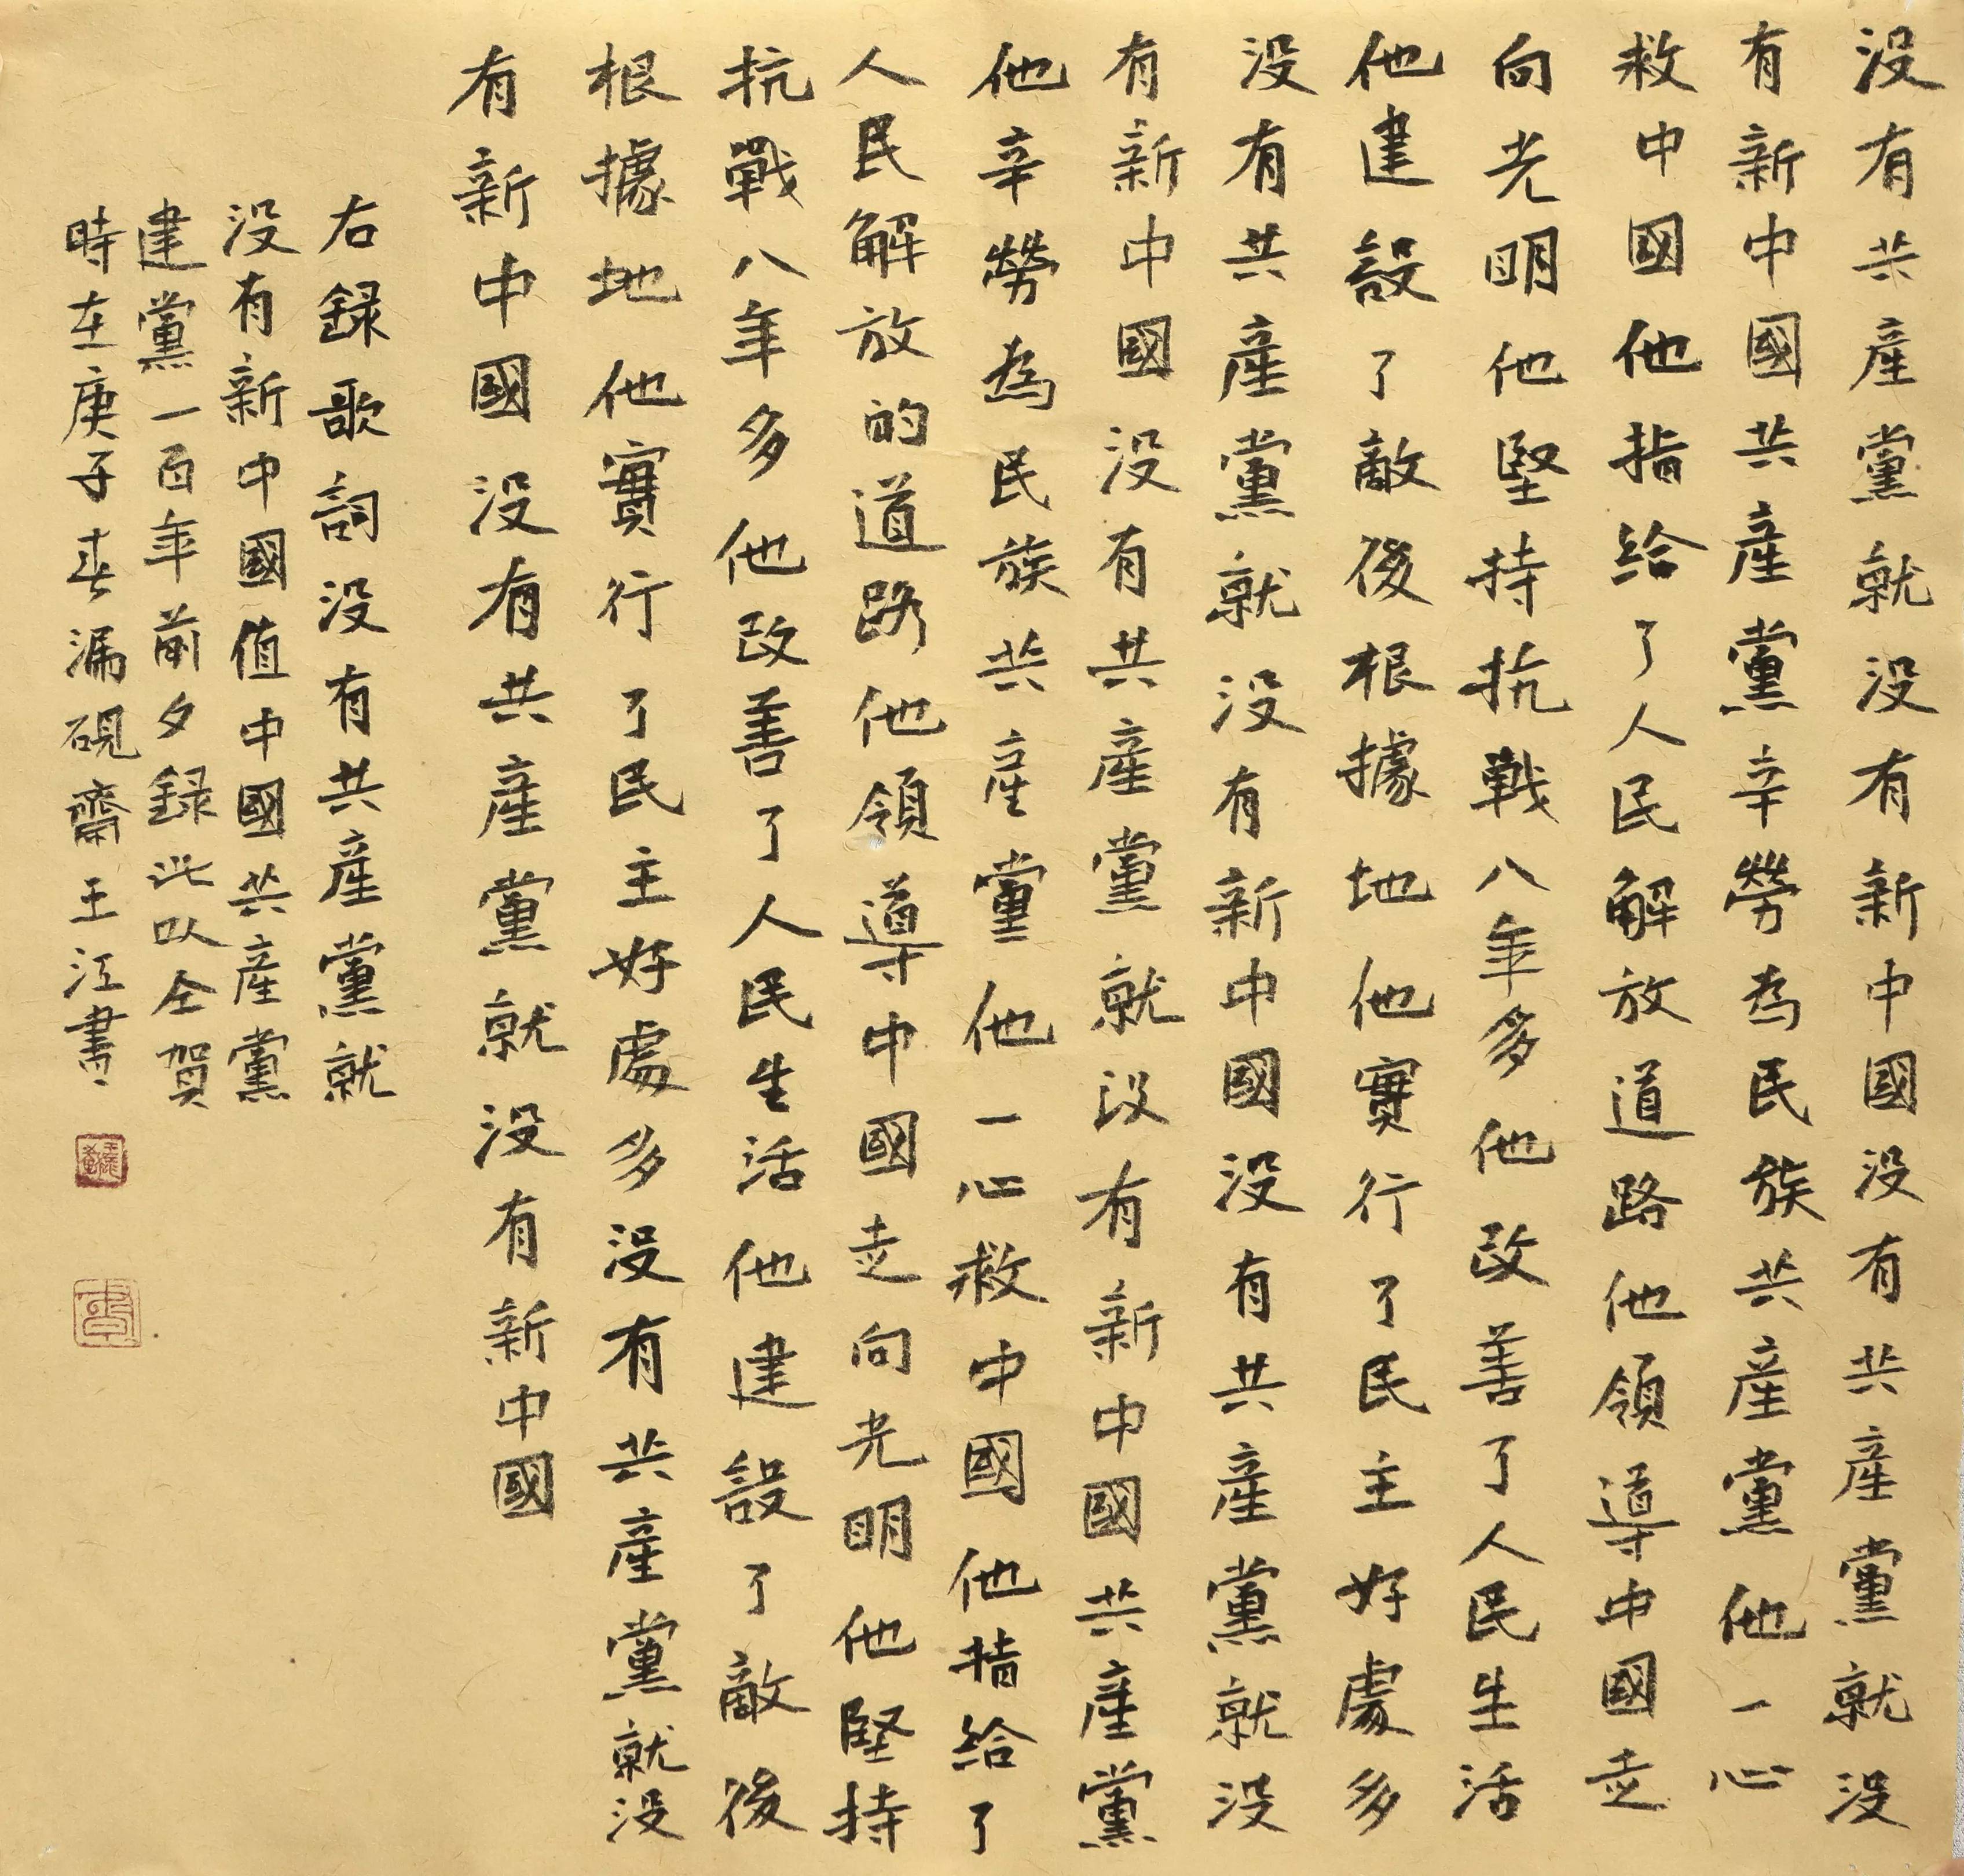 没有共產黨就没有新中國没有共產黨就没
有新中國共產黨辛勞為民族共產黨他一心
救中國他指給了人民解放道路他領導中國走
向光明他堅持抗戰八年多他改善了人民生活
他建設了敵後根據地他實行了民主好處多
没有共產黨就没有新中國没有共產黨就没
有新中國没有共產黨就没有新中國共產黨
他辛勞為民族共產黨他一心救中國他指給了
人民解放的道路他領導中國走向光明他堅持
抗戰八年多他改善了人民生活他建設了敵後
根據地他實行了民主好處多没有共產黨就没
有新中國没有共產黨就没有新中國
右録歌詞没有共產黨就
没有新中國值中國共產黨
建黨一百年前夕録此以全賀
時在庚子春漏硯齋王江書